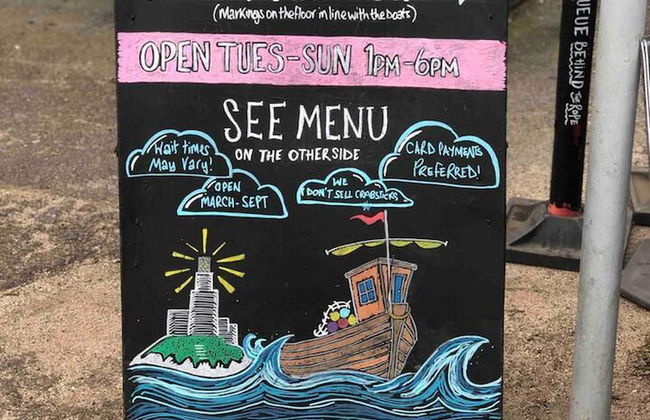 (Markings on the floor in line with the boats)
OPEN TUES-SUN 1PM-6PM
SEE MENU
ON THE OTHERSIDE
Wait times
May Vary!
CARD PAYMENTS
PREFERRED!
OPEN
MARCH-SEPT
WE
DON'T SELL CRABSTICKS
QUEUE BEHIND THE ROPE